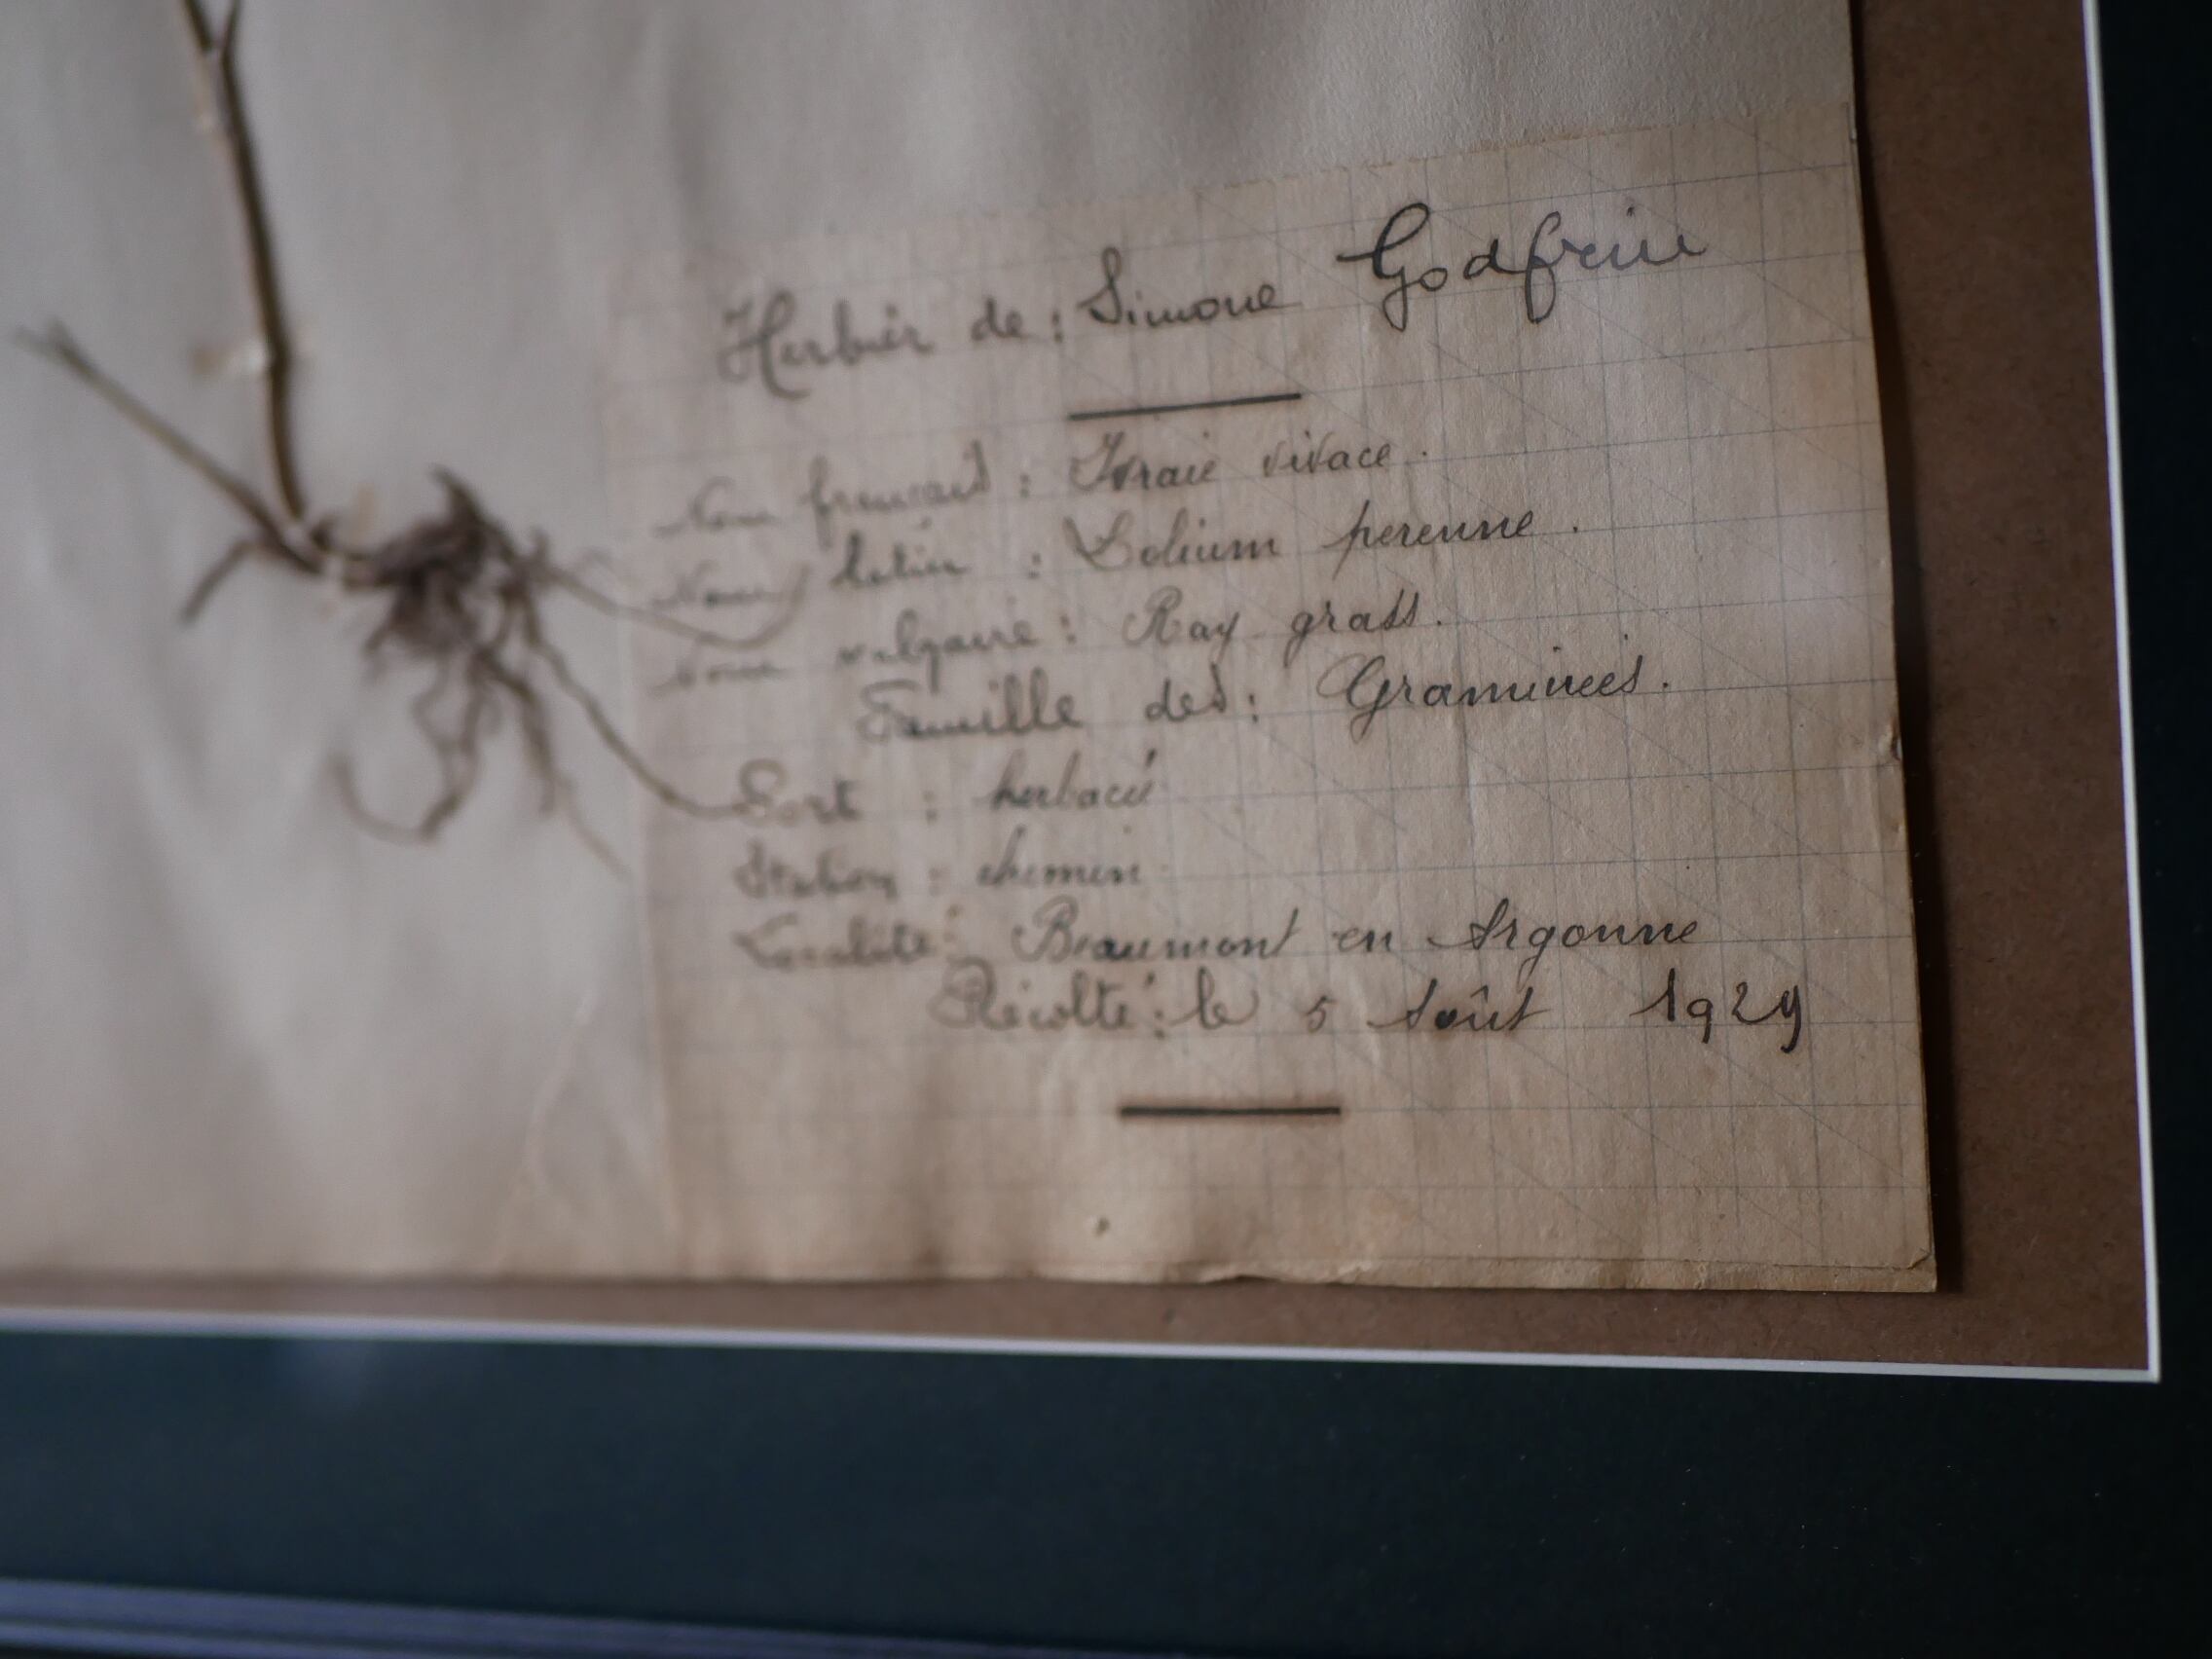 Herbier de : Simone Godfrin
Nom français : Ivraie vivace.
Nom latin : Lolium perenne.
Nom vulgaire : Ray grass.
Famille des : Graminées.
Port : herbacé
Station : chemin
Localité : Beaumont en Argonne
Récolté : le 5 Août 1929